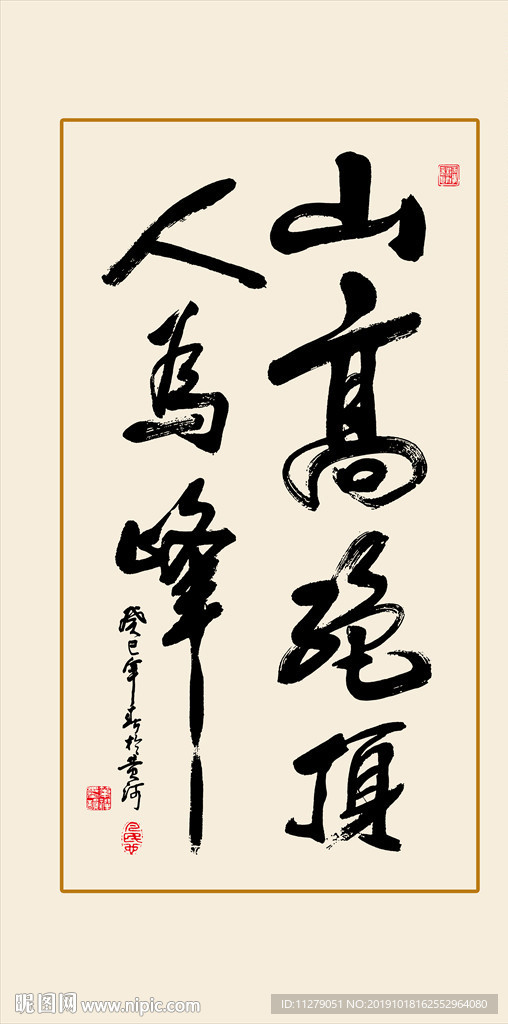 山高绝頂
人為峰
癸巳年春於黄河
昵图网 www.nipic.com
ID:11279051 NO:20191018162552964080